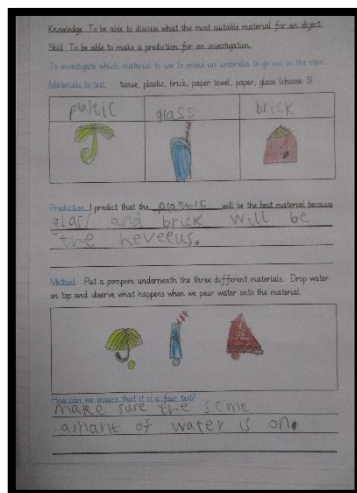 Knowledge: To be able to discuss what the most suitable material for an object.
Skill: To be able to make a prediction for an investigation.
To investigate which material to use to make an umbrella to go out in the rain.
Materials to test: tissue, plastic, brick, paper towel, paper, glass (choose 3)
plastic glass brick
Prediction: I predict that the plastic will be the best material because
glass and brick will be
the heveeus.
Method: Put a pompom underneath the three different materials. Drop water
on top and observe what happens when we pour water onto the material.
How can we ensure that it is a fair test?
make sure the scme
amant of water is on.